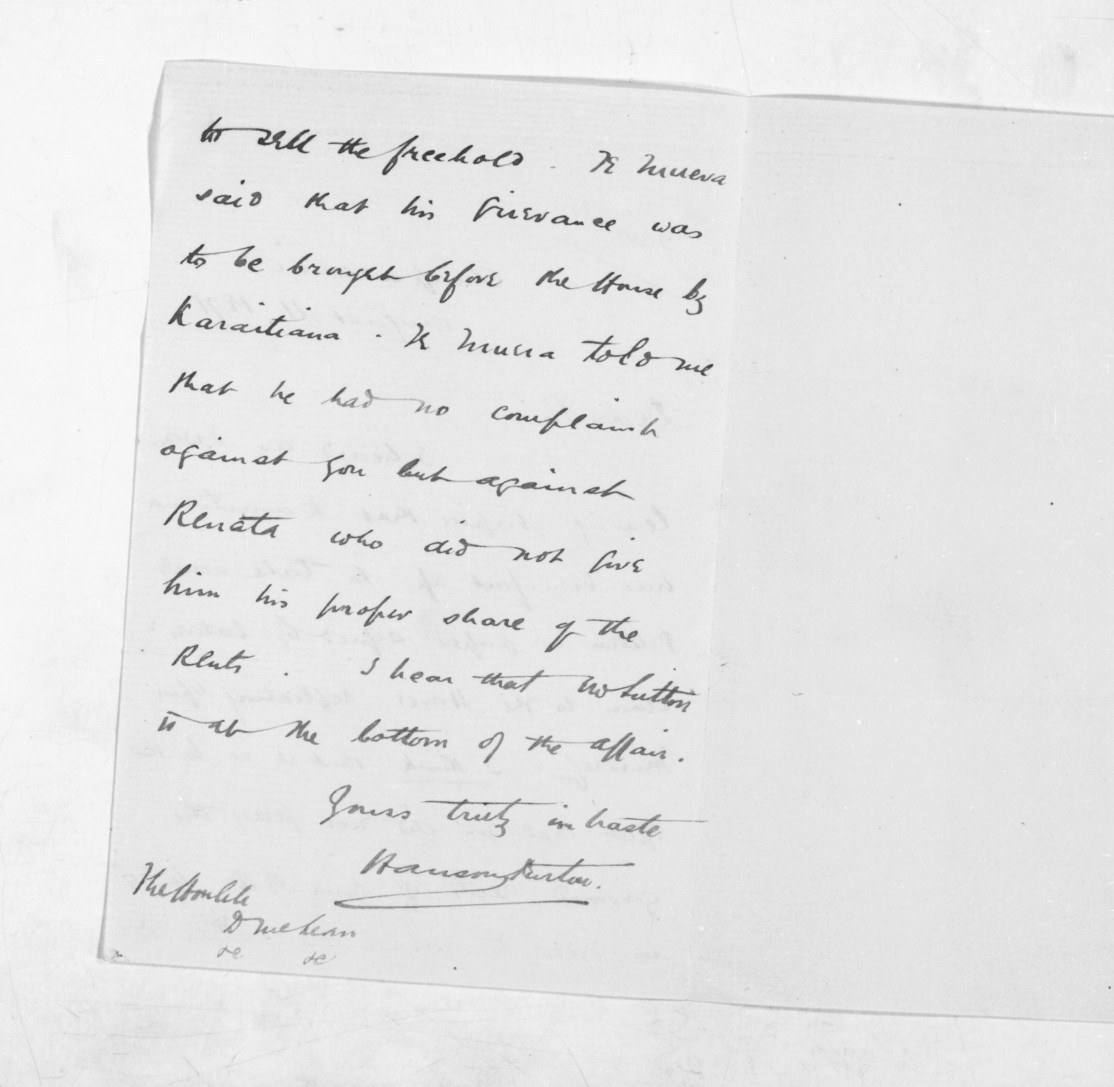 to sell the freehold. Te Muera
said that his Grievance was
to be brought before the House by
Karaitiana. Te Muera told me
that he had no complaint
against you but against
Renata who did not Give
him his proper share of the
Rents. I hear that Mr Sutton
is at the bottom of the affair.
Yours truly in haste
Hanson Turton.
The Honble
D McLean
&c &c